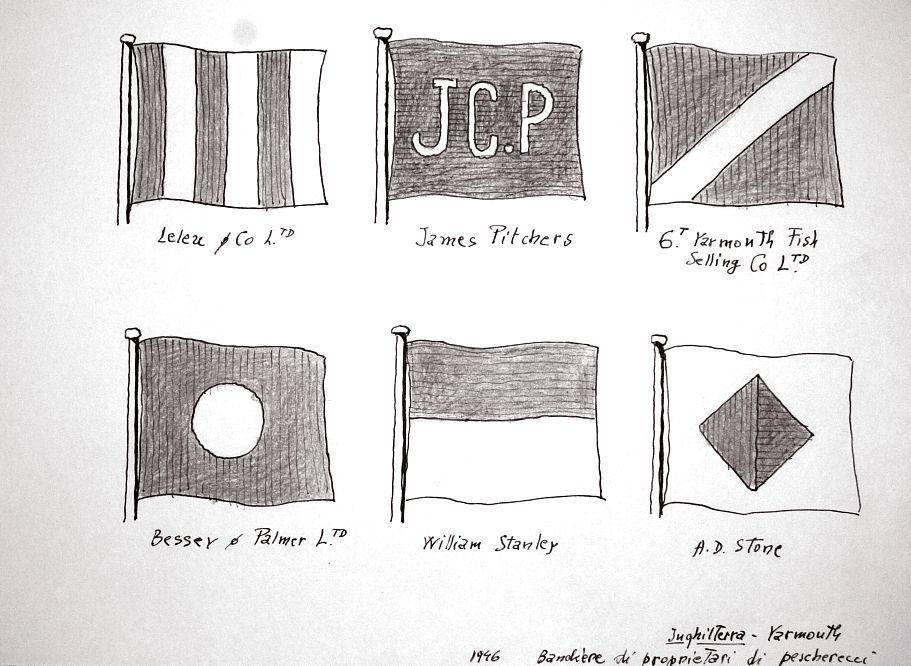 Leleu & Co L.TD
JC.P
James Pitchers
G.T Yarmouth Fish
Selling Co L.TD
Besser & Palmer L.TD
William Stanley
A.D. Stone
Inghilterra - Yarmouth
1946 Bandiere di proprietari di pescherecci